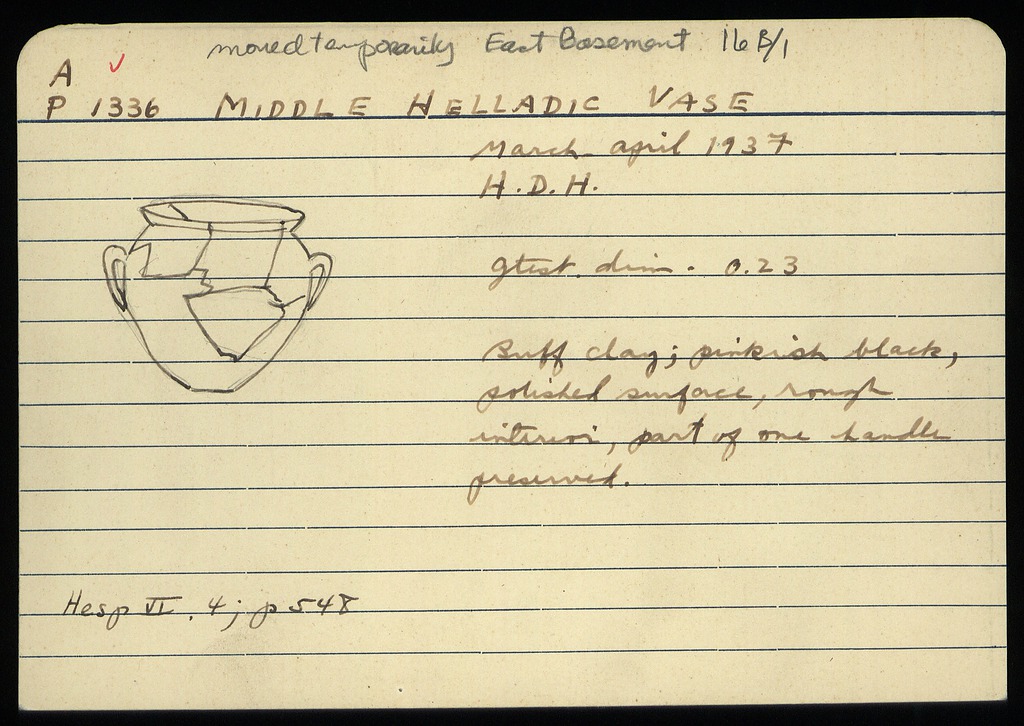 moved temporarily East Basement 16 B/1
A ✓
P 1336 MIDDLE HELLADIC VASE
March - april 1937
H.D.H.
gtest. dim. 0.23
Buff clay; pinkish black,
polished surface, rough
interior, part of one handle
preserved.
Hesp VI. 4; p 548